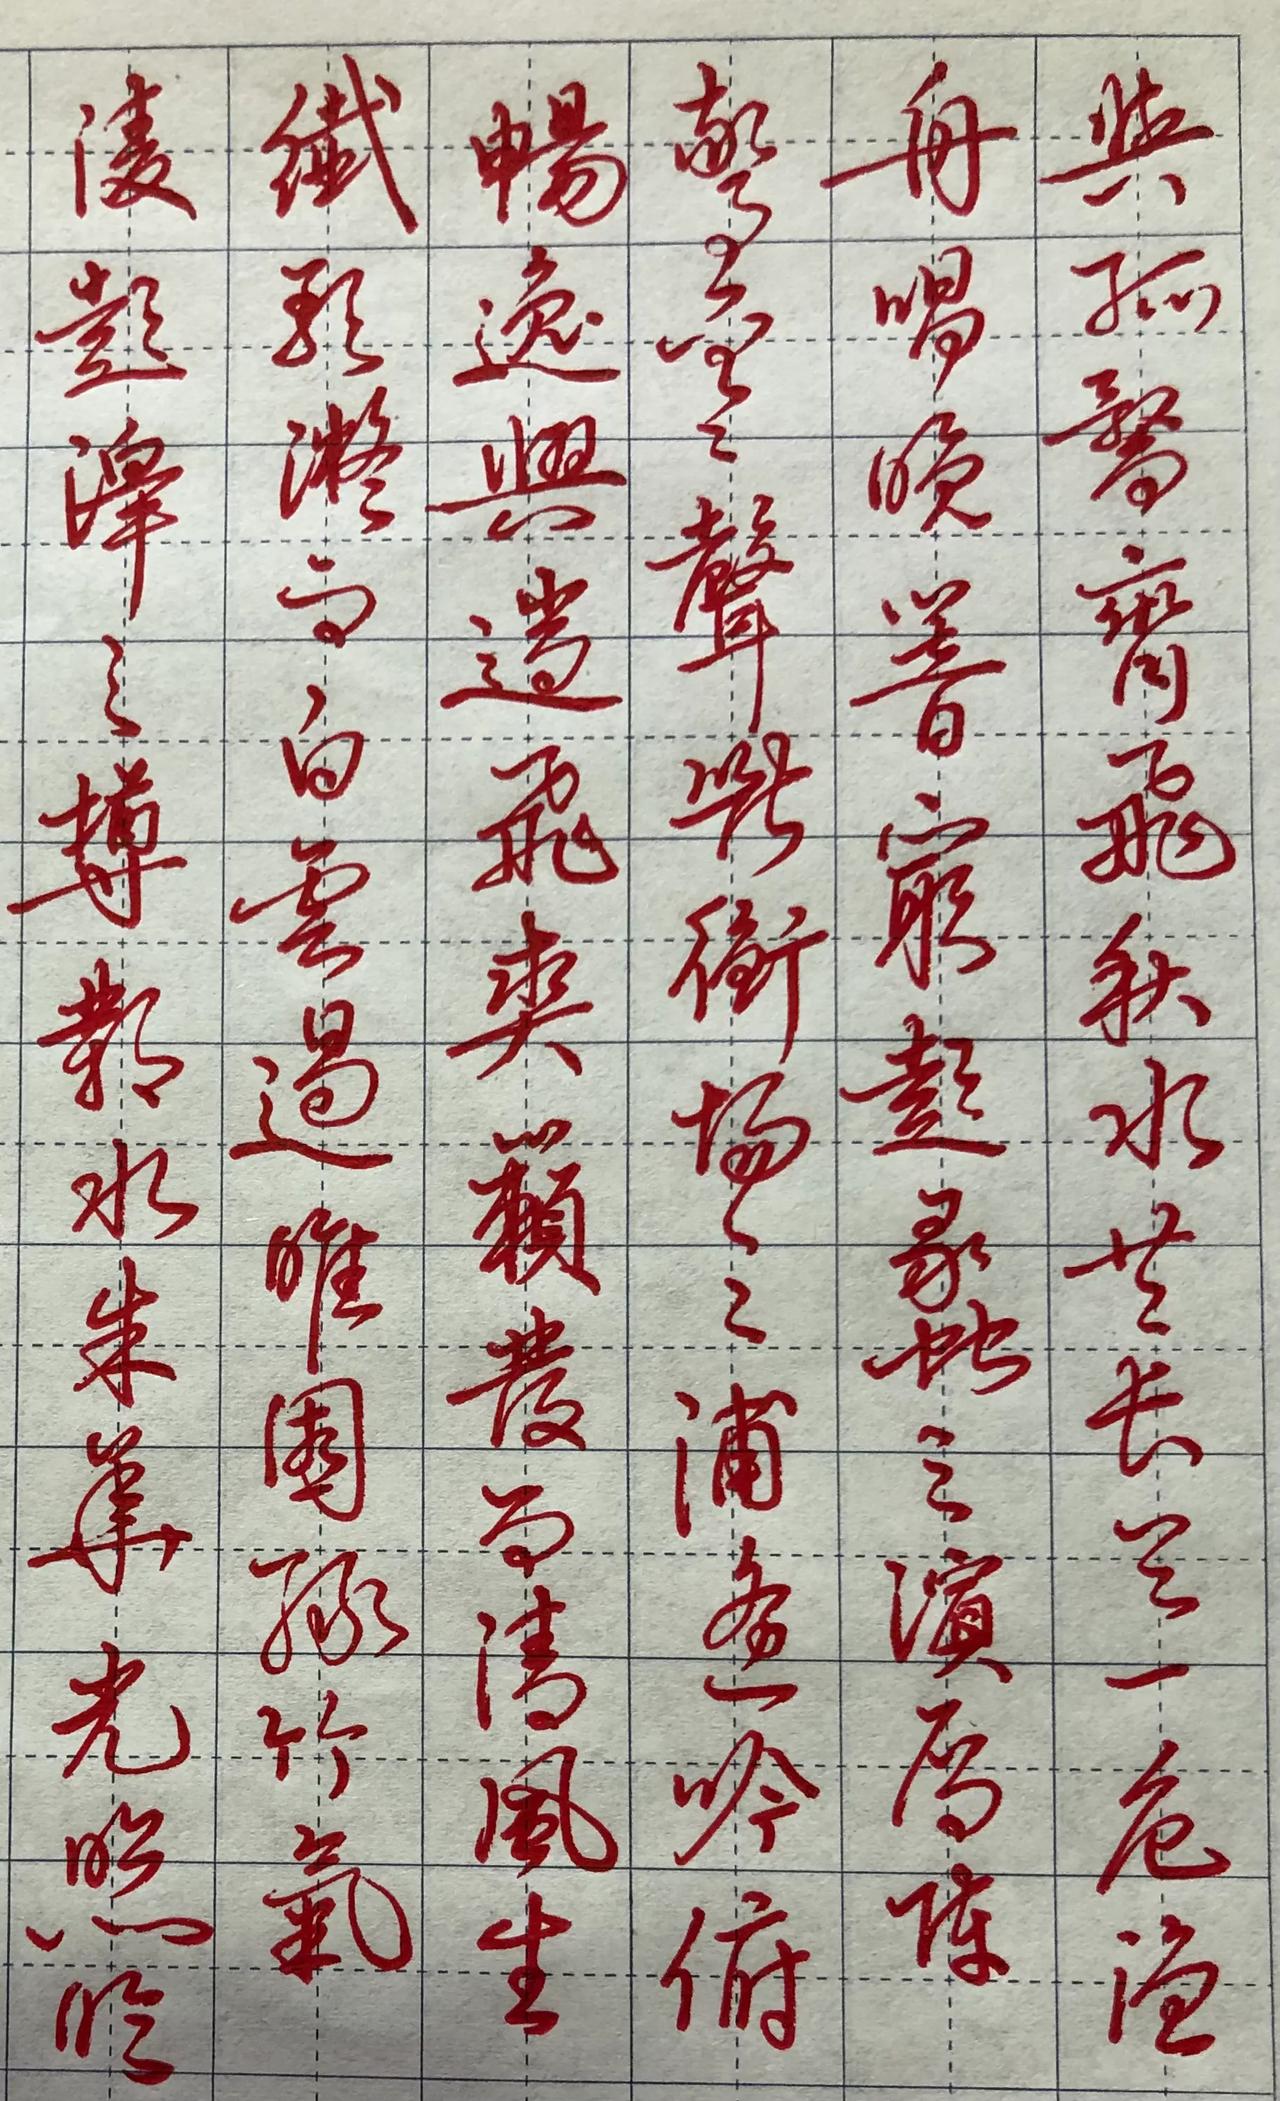 與孤鶩齊飛秋水共长天一色漁
舟唱晚響窮彭蠡之濱雁陣
驚寒聲斷衡陽之浦遥吟俯
暢逸興遄飛爽籟發而清風生
纖歌凝而白雲遏睢園綠竹氣
淩彭澤之樽鄴水朱華光照臨